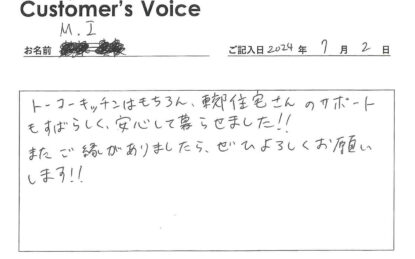 Customer's Voice
M.I
お名前
ご記入日 2024 年 7 月 2 日
トーコーキッチンはもちろん、東郊住宅さんのサポート
もすばらしく、安心して暮らせました!!
またご縁がありましたら、ぜひよろしくお願い
します!!